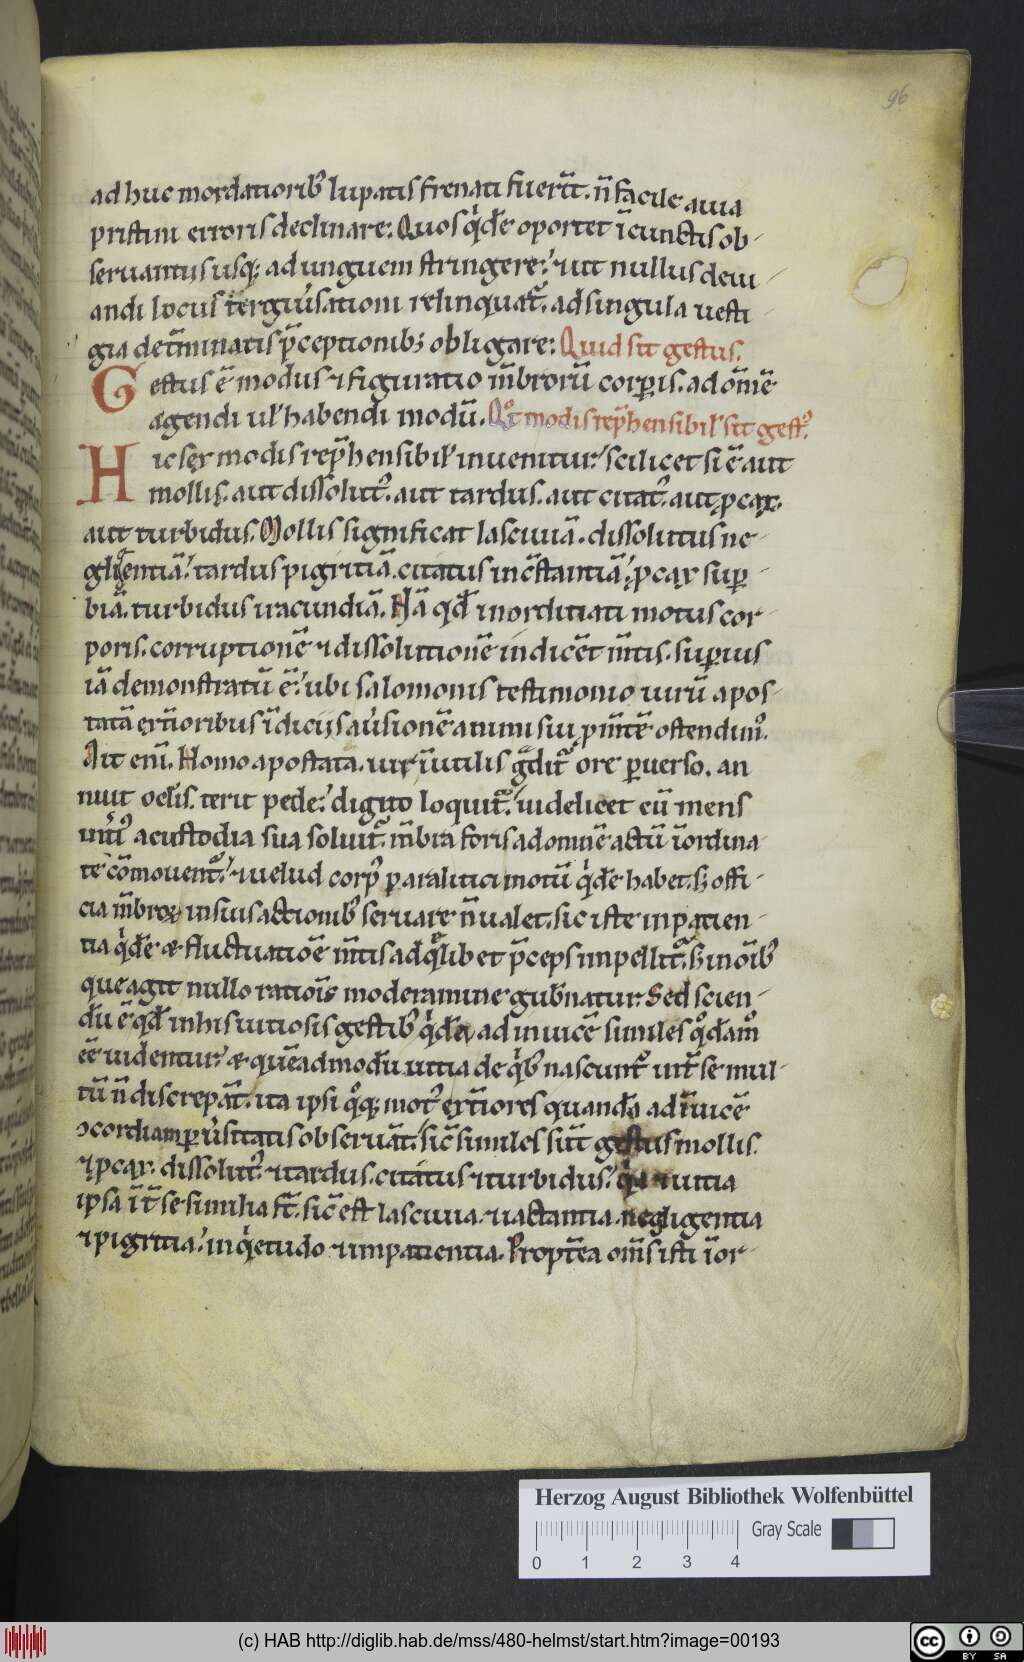 96
ad huc mordatiorib' lupatis frenati fuerīt. n̄ facile auia
pristini erroris declinare. Quos qͥdē oportet īcunctis ob
seruantius usq; ad unguem stringere. ⁊ ut nullus deui
andi locus tergiūsationi relinquat᷑. ad singula uesti
gia det̄minatis p̄ceptionib; obligare. Quid sit gestus.
Gestus ē modus ⁊ figuratio m̄brorū corꝑis. ad om̄ē
agendi ul' habendi modū. Qͦt modis rep̄hensibil' sit gest'.
Hic sex modis rep̄hensibil' inuenitur. scilicet si ē aut
mollis. aut dissolut'. aut tardus. aut citat'. aut ꝓcax.
aut turbidus. Mollis significat lasciuiā. dissolutus ne
gligentiā. tardus pigritiā. citatus incōstantiā. ꝓcax suꝑ
biā. turbidus iracundiā. Nā qđ inordinati motus cor
poris. corruptionē ⁊ dissolutionē indicēt m̄tis. suꝑius
iā demonstratū ē. ubi salomonis testimonio uirū apos
tatā ext̄ioribus īdiciis aūsionē animi sui ꝓm̄tē ostendim'.
Ait enī. Homo apostata. uir īutilis gͣdit᷑ ore ꝑuerso. an
nuit oc̄lis. terit pede. digito loquit᷑. uidelicet cū mens
a custodia sua soluit᷑. m̄bra foris ad omnē actū īordina
te cōmouent᷑. ⁊ uelud corp' paralitici motū qͥdē habet. s; offi
cia m̄broꝝ in suis actionib' seruare n̄ ualet. sic iste inpatien
tia qͥdē & fluctuatiōe m̄tis ad qͦdlibet p̄ceps impellit᷑. s; in oīb'
que agit nullo rationis moderamine gub̄natur. Sed scien
dū ē qđ in his uitiosis gestib' qͥdā ad inuicē similes qͦdāmͦ
eē uidentur. & quēadmodū uitia de qͥb' nascunt᷑ int̄ se mul
tū n̄ discrepāt. ita ipsi qͦq; mot' ext̄iores quandā ad īuicē
ↄcordiam ꝑūsitatis obseruāt. sic̄ similes sūt gestus mollis
⁊ ꝓcax. dissolut' ⁊ tardus. citatus ⁊ turbidus. qͥa ⁊ uitia
ipsa īt̄ se similia st̄. sic̄ est lasciuia. ⁊ iactantia. negligentia
⁊ pigritia. inqͥetudo ⁊ impatientia. Propt̄ea om̄s isti īor
Herzog August Bibliothek Wolfenbüttel
0 1 2 3 4
Gray Scale
(c) HAB http://diglib.hab.de/mss/480-helmst/start.htm?image=00193
cc BY SA